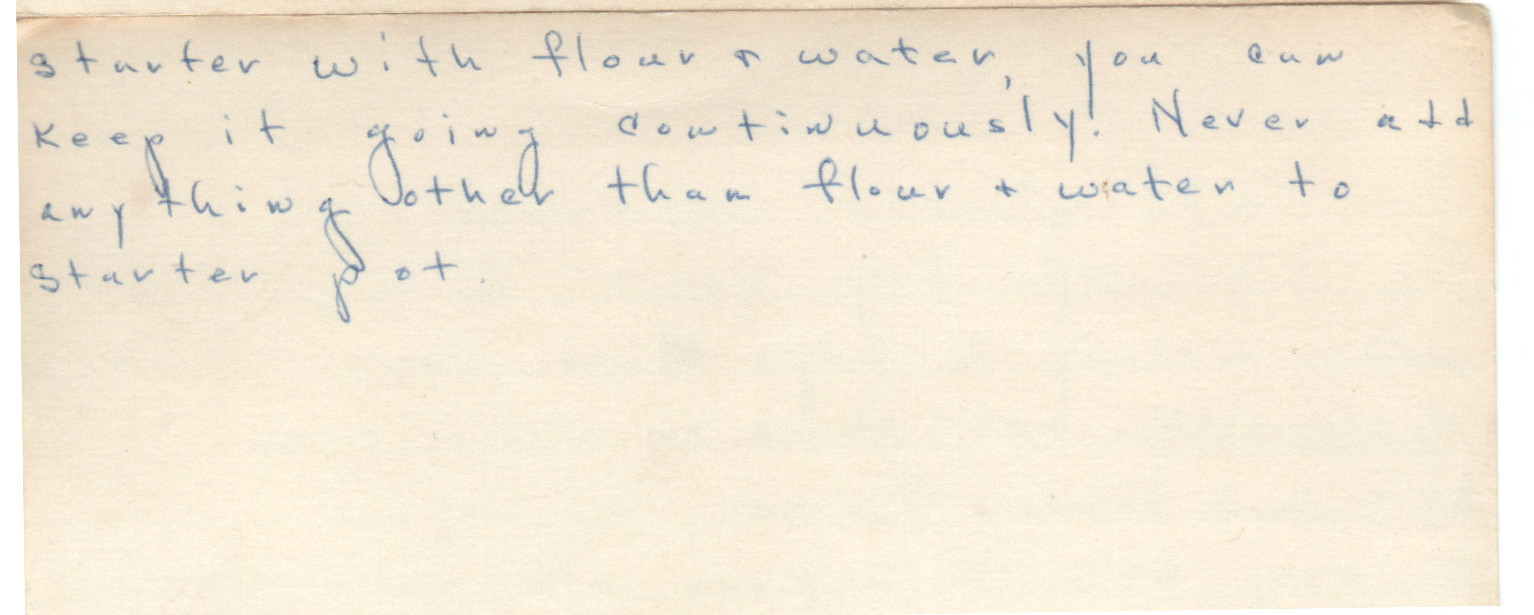 starter with flour & water, you can
keep it going continuously! Never add
anything other than flour & water to
starter pot.